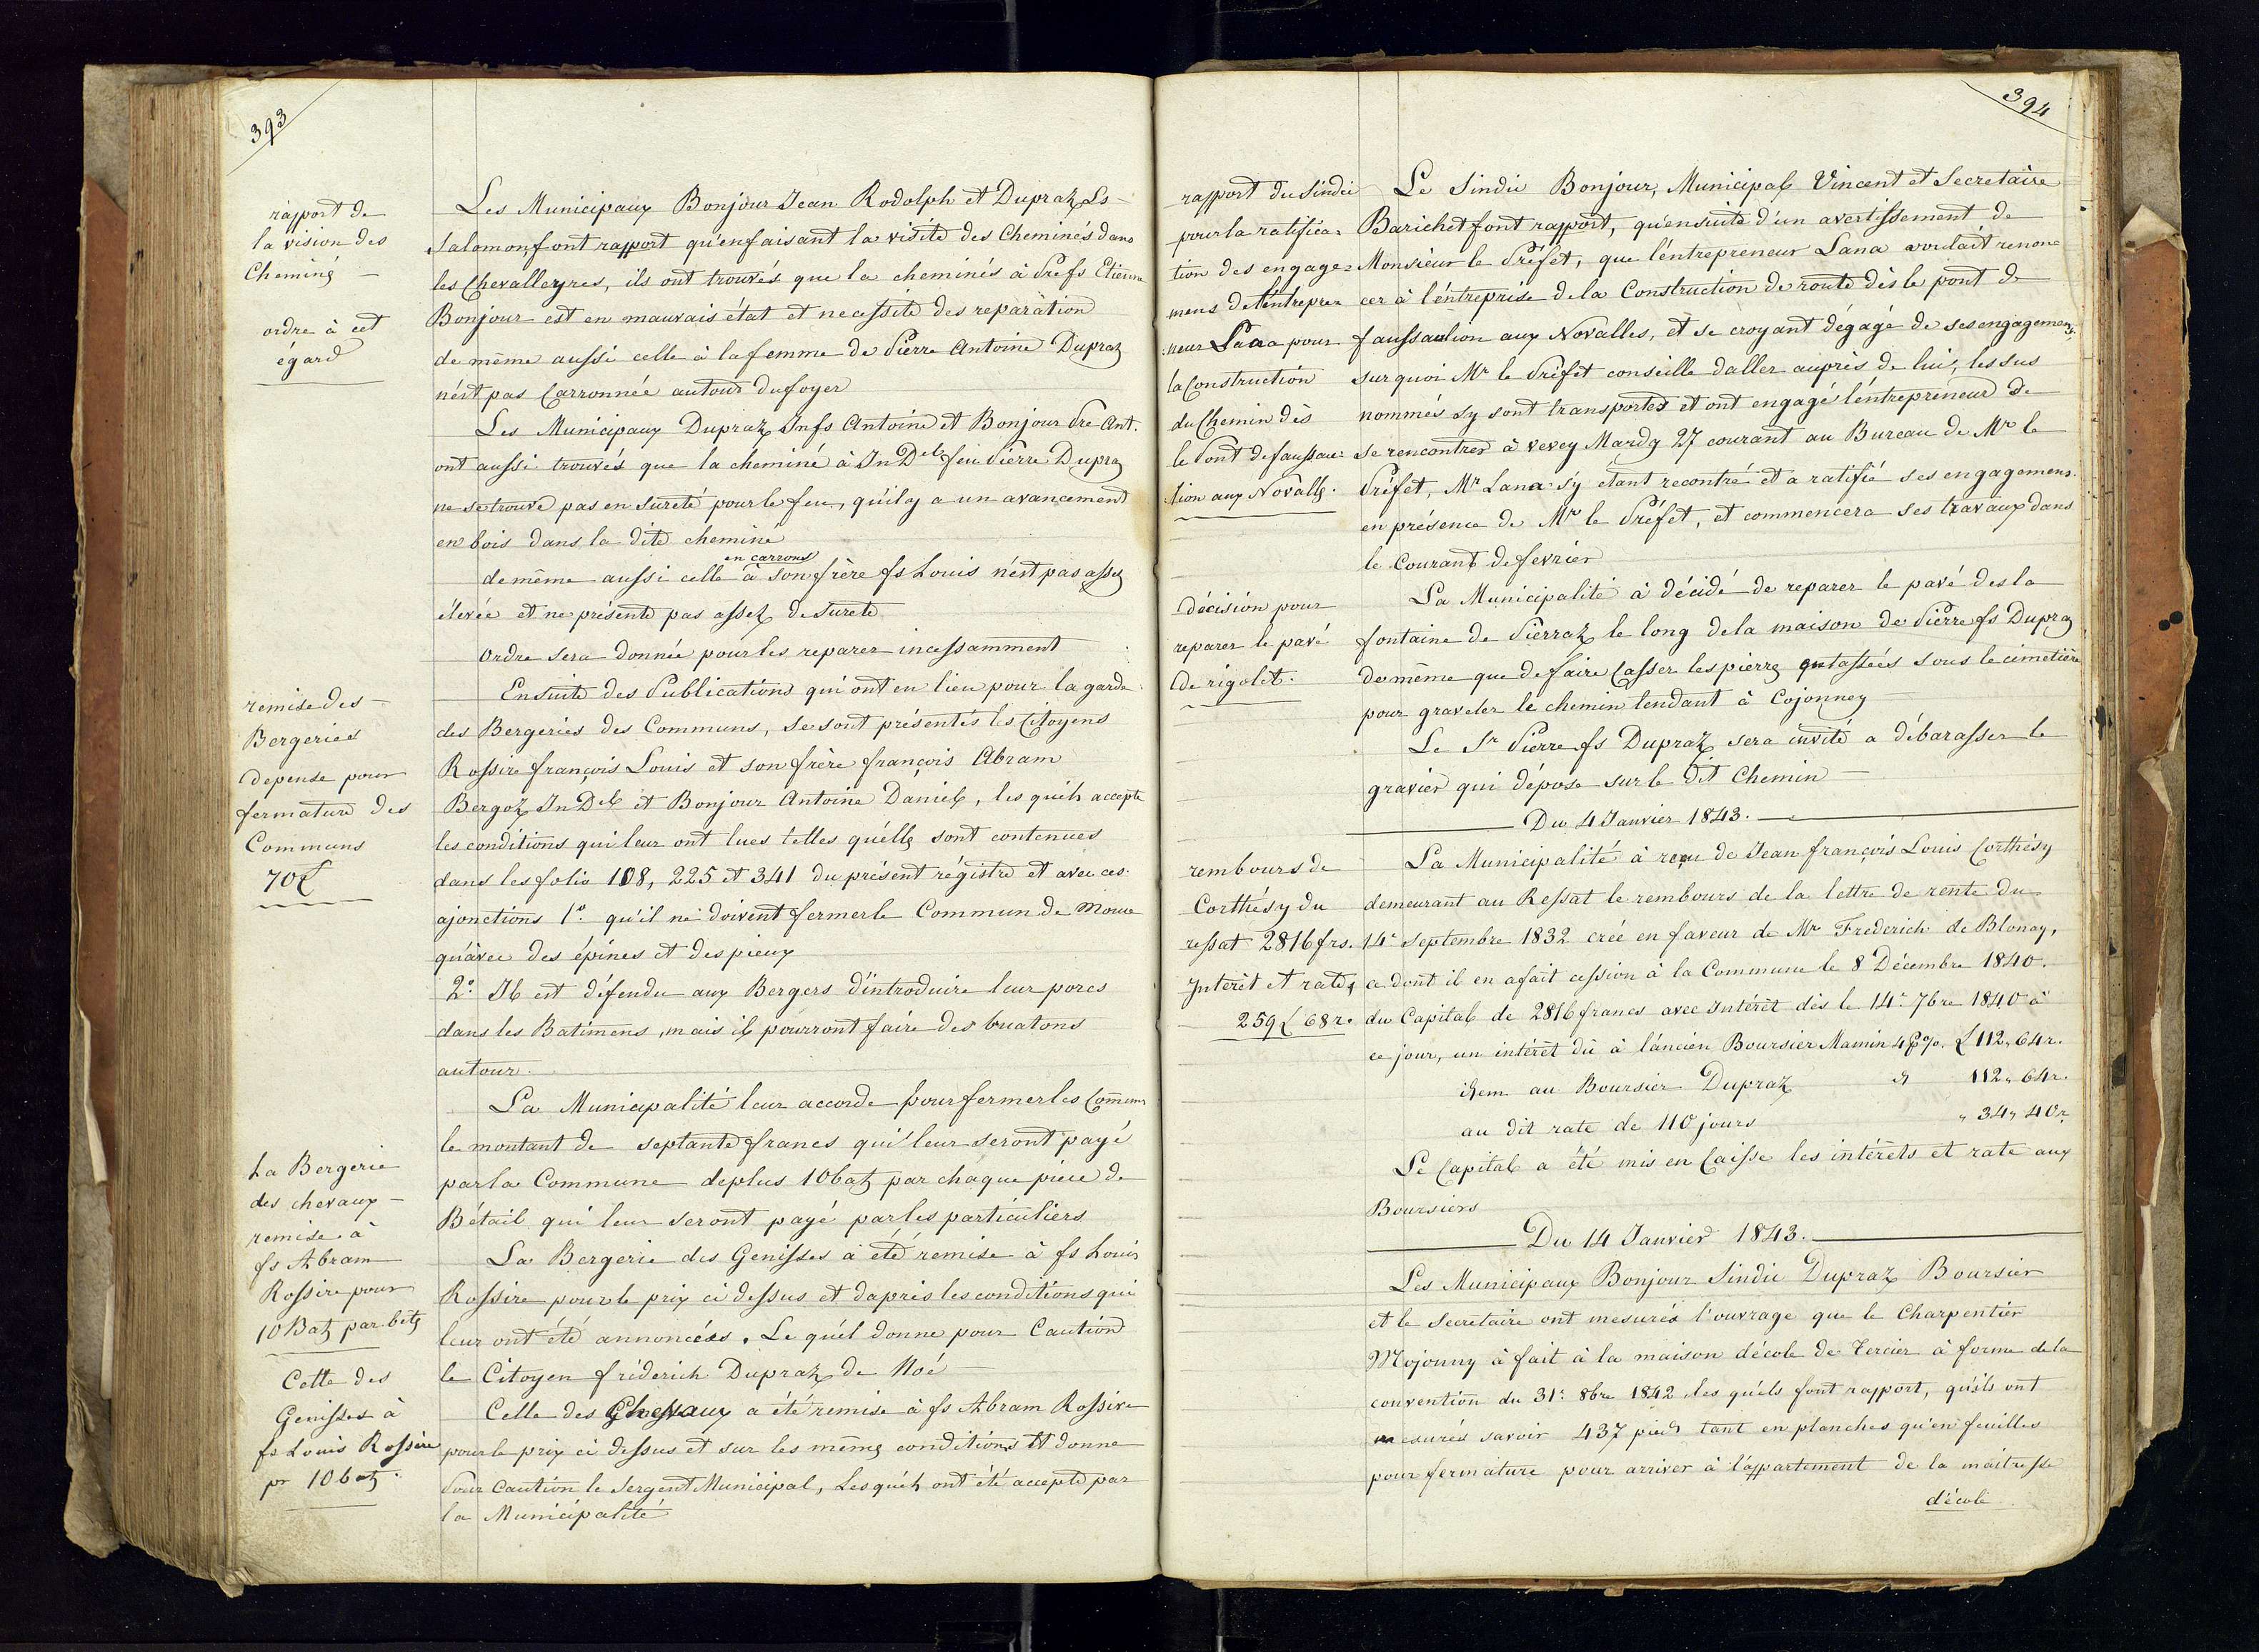 393
rapport de
la vision des
Cheminé
ordre à cet
égard
Les Municipaux Bonjour Jean Rodolph et Dupraz Ls
Salomon, font rapport qu'en faisant la visite des Cheminés dans
les Chevalleyres, ils ont trouvés que la cheminés à Prefs Etienne
Bonjour est en mauvais état et necessite des reparation
de même aussi celle à la femme de Pierre Antoine Dupraz
n'ést pas Carronnée autour du foyer
Les Municipaux Dupraz Jnfs Antoine et Bonjour Pre Ant.
ont aussi trouvés que la cheminé à Jn Del feu Pierre Dupraz
ne se trouve pas en sureté pour le feu, qu'il y a un avancement
en bois dans la dite chéminé
en carrons
de même aussi celle à son frère fs Louis n'ést pas assez
élevée et ne présente pas assez de sureté
Ordre sera donnée pour les reparer incessamment
remise des
Bergeries
depense pour
fermature des
Communs
70 £
Ensuite des Publications qui ont eu lieu pour la garde
des Bergeries des Communs, se sont présentés les Citoyens
Rossire françois Louis et son frère françois Abram
Bergoz Jn Del et Bonjour Antoine Daniel, les quels accepte
les conditions qui leur ont lues telles qu'élles sont contenues
dans les folio 108, 225 et 341 du présent régistre et avec ces
ajonctions 1o. qu'il ne doivent fermer le Commun de Moue
qu'àvec des épines et des pieux
2o. Il est défendu aux Bergers d'introduire leur porcs
dans les Batimens, mais il pourront faire des buatons
autour.
La Municipalité leur accorde pour fermer les Communs
le montant de septante francs qui leur seront payé
par la Commune deplus 10 batz par chaque piéce de
Bétail qui leur seront payé par les particuliers
La Bergerie
des chevaux
remise à
fs Abram
Rossire pour
10 Batz par bêtes
La Bergerie des Genisses a été remise à fs Louis
Rossire pour le prix ci dessus et d'aprés les conditions qui
leur ont été annoncées. Le quél donne pour Caution
le Citoyen fréderich Dupraz de Noé
Celle des
Genisses à
fs Louis Rossire
pr 10 batz.
Celle des Chevaux a été remise à fs Abram Rossire
pour le prix ci dessus et sur les mêmes conditions et donne
Pour Caution le Sergent Municipal, Les quéls ont été accepté par
la Municipalité
394
rapport du Sindic
pour la ratifica=
tion des engage=
mens de l'éntrepre
neur Lana pour
la Construction
du Chemin dès
le Pont de faussau=
tion aux Novalles.
Le Sindic Bonjour, Municipal Vincent et Secretaire
Barichet font rapport, qu'ensuite d'un avertissement de
Monsieur le Préfet, que l'éntrepreneur Lana voulait renon=
cer à l'éntreprise de la Construction de route dès le pont de
faussaution aux Novalles, et se croyant dégagé de ses engagemens,
sur quoi Mr le Préfet conseille d'aller auprès de lui, les sus
nommés s'y sont transportes et ont engagé l'éntrepreneur de
se rencontrer à Vevey Mardy 27 courant au Bureau de Mr le
Préfet, Mr Lana s'y etant recontré et a ratifié ses engagemens.
en présence de Mr le Préfet, et commencera ses travaux dans
le Courant de fevrier
décision pour
reparer le pavé
de rigolet.
La Municipalité à décidé de reparer le pavé des la
fontaine de Pierraz le long de la maison de Pierre fs Dupraz
de même que de faire Casser les pierres entassées sous le cimetière
pour graveler le chemin tendant à Cojonney
Le Sr Pierre fs Dupraz sera invité a débarasser le
gravier qui dépose sur le dit Chemin
Du 4 Janvier 1843.
rembours de
Corthésy du
ressat 2816 frs.
Jnterêt et rates
259 £ 68 r.
La Municipalité à reçu de Jean françois Louis Corthésy
demeurant au Ressat le rembours de la lettre de rente du
14e septembre 1832 crée en faveur de Mr Frederich de Blonay,
ce dont il en a fait cession à la Commune le 8 Décembre 1840.
du Capital de 2816 francs avec Intérêt dès le 14e 7bre 1840 à
ce jour, un intérêt dû à l'áncien Boursier Mamin 4 P%. £ 112„ 64 r.
idem au Boursier Dupraz 112„ 64 r.
au dit rate de 110 jours „ 34„ 40 r.
Le Capital a été mis en Caisse les intérêts et rate aux
Boursiers
Du 14 Janvier 1843.
Les Municipaux Bonjour Sindic Dupraz Boursier
et le Secretaire ont mesurés l'ouvrage que le Charpentier
Mojonny à fait à la maison d'école de Tercier à forme de la
convention du 31e 8bre 1842 les quéls font rapport, qu'ils ont
mesurés savoir 437 pieds tant en planches qu'en feuilles
pour fermature pour arriver à l'appartement de la maitresse
d'école